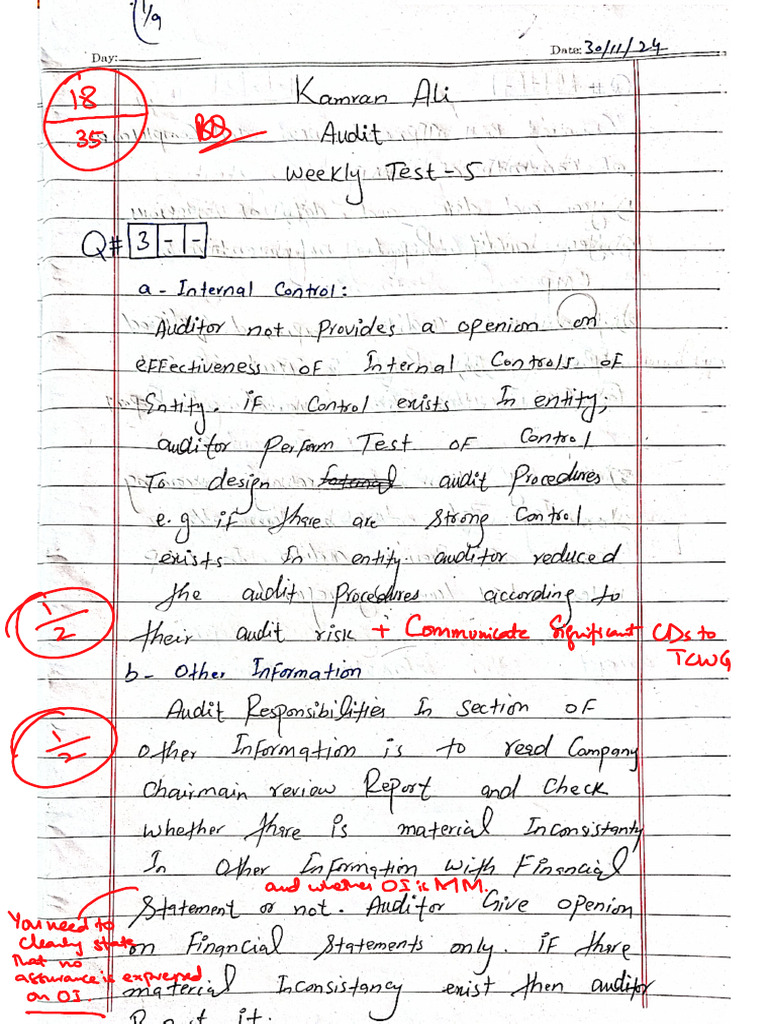 1/9
Day:
Date: 30/11/24
18
35
Kamran Ali
Audit
Weekly Test - 5
Q# 3 - -
a - Internal Control:
Auditor not Provides a openion on
effectiveness of Internal Controls of
Entity. if Control exists In entity;
auditor perform Test of Control
To design audit Procedures
e.g if there are strong Control
exists In entity auditor reduced
the audit Procedures according to
their audit risk + Communicate Significant CDs to
TCWG
1/2
b - Other Information
Audit Responsibilities In section of
1/2
Other Information is to read Company
Chairmain review Report and Check
whether there is material Inconsistanty
In Other Information with Financial
and whether OI is MM.
Statement or not. Auditor Give openion
on Financial Statements only. if there
material Inconsistancy exist then auditor
You need to
clearly state
that no
assurance is expressed
on OI.